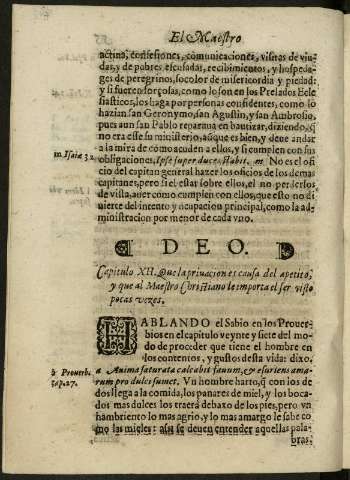 El Maestro
actiua, confesiones, comunicaciones, visitas de viu-
das, y de pobres escusadas, recibimientos, y hospeda-
ges de peregrinos, socolor de misericordia y piedad:
y si fueren forçosas, como lo son en los Prelados Ecle
siasticos, los haga por personas confidentes, como lo
hazian san Geronymo, san Agustin, y san Ambrosio,
pues aun san Pablo reparaua en bautizar, diziendo, q̃
no era esse su ministerio, aũque es bien, y deue andar
a la mira de cómo acuden a ellos, y si cumplen con sus
m Isaiæ 32.
obligaciones, Ipse super duces stabit. m No es el ofi
cio del capitan general hazer los oficios de los demas
capitanes, pero si el estar sobre ellos, el no perderlos
de vista, auer como cumplen con ellos, que esto no di
uierte del intento y ocupacion principal, como la ad-
ministracion por menor de cada vno.
DEO.
Capitulo XII. Que la priuacion es causa del apetito,
y que al Maestro Christiano le importa el ser visto
pocas vezes.
HABLANDO el Sabio en los Prouer-
bios en el capitulo veynte y siete del mo-
do de proceder que tiene el hombre en
los contentos, y gustos desta vida: dixo.
à Prouerb. cap. 27.
a Anima saturata calcabit fauum, & esuriens ama-
rum pro dulci sumet. Vn hombre harto, q̃ con los de
dos llega a la comida, los panares de miel, y los boca-
dos mas dulces los traera debaxo de los pies, pero vn
hambriento lo mas agrio, y lo mas amargo le sabe co
mo las mieles: assi se deuen entender aquellas pala-
bras.